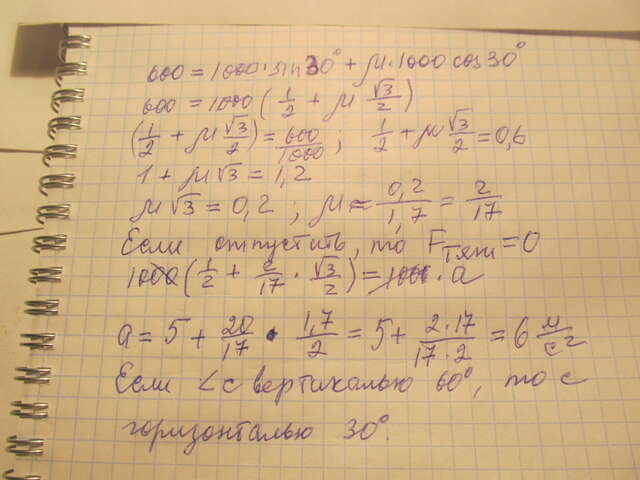 600 = 1000·sin30° + μ·1000 cos30°
600 = 1000 (1/2 + μ √3/2)
(1/2 + μ √3/2) = 600/1000 ; 1/2 + μ √3/2 = 0,6
1 + μ √3 = 1,2
μ √3 = 0,2 ; μ = 0,2/1,7 = 2/17
Если отпустить, то Fтяги = 0
1000 (1/2 + 2/17 · √3/2) = 1000 · a
a = 5 + 20/17 · 1,7/2 = 5 + 2·17/17·2 = 6 м/с²
Если ∠ с вертикалью 60°, то с
горизонталью 30°.